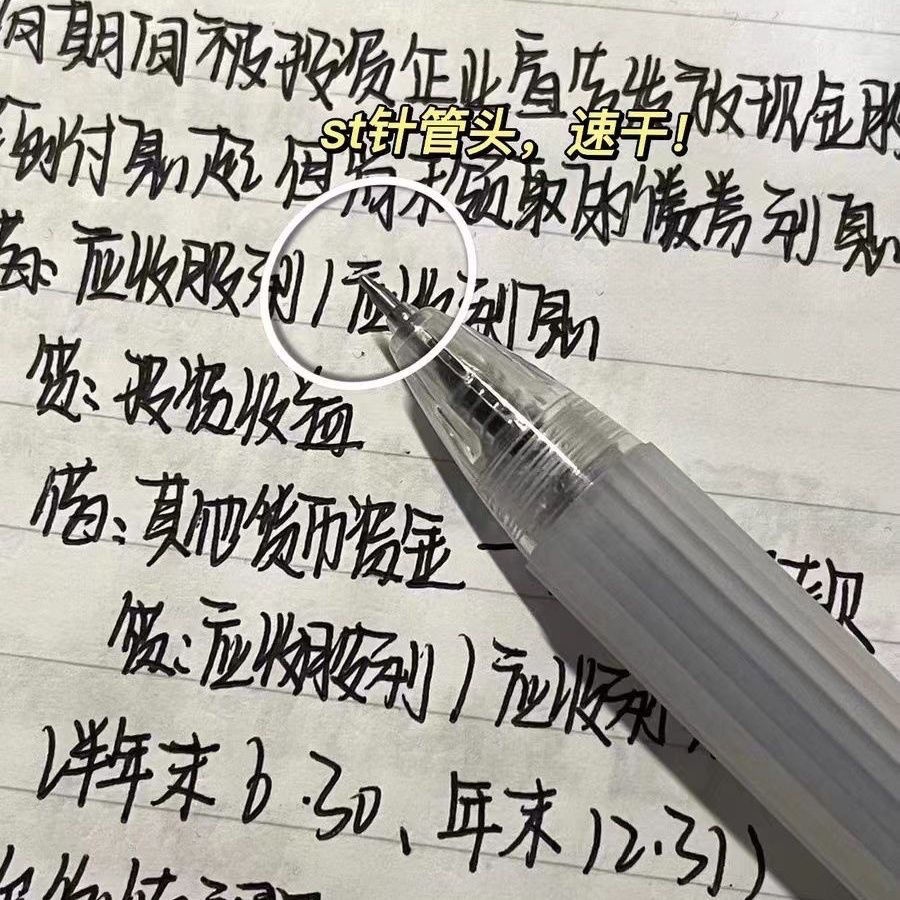 间期间被投资企业宣告发放现金股
st针管头，速干！
到付息起但尚未领取的债券利息
借：应收股利/应收利息
贷：投资收益
借：其他货币资金一
贷：应收股利/应收利
(半年末6.30、年末12.31)